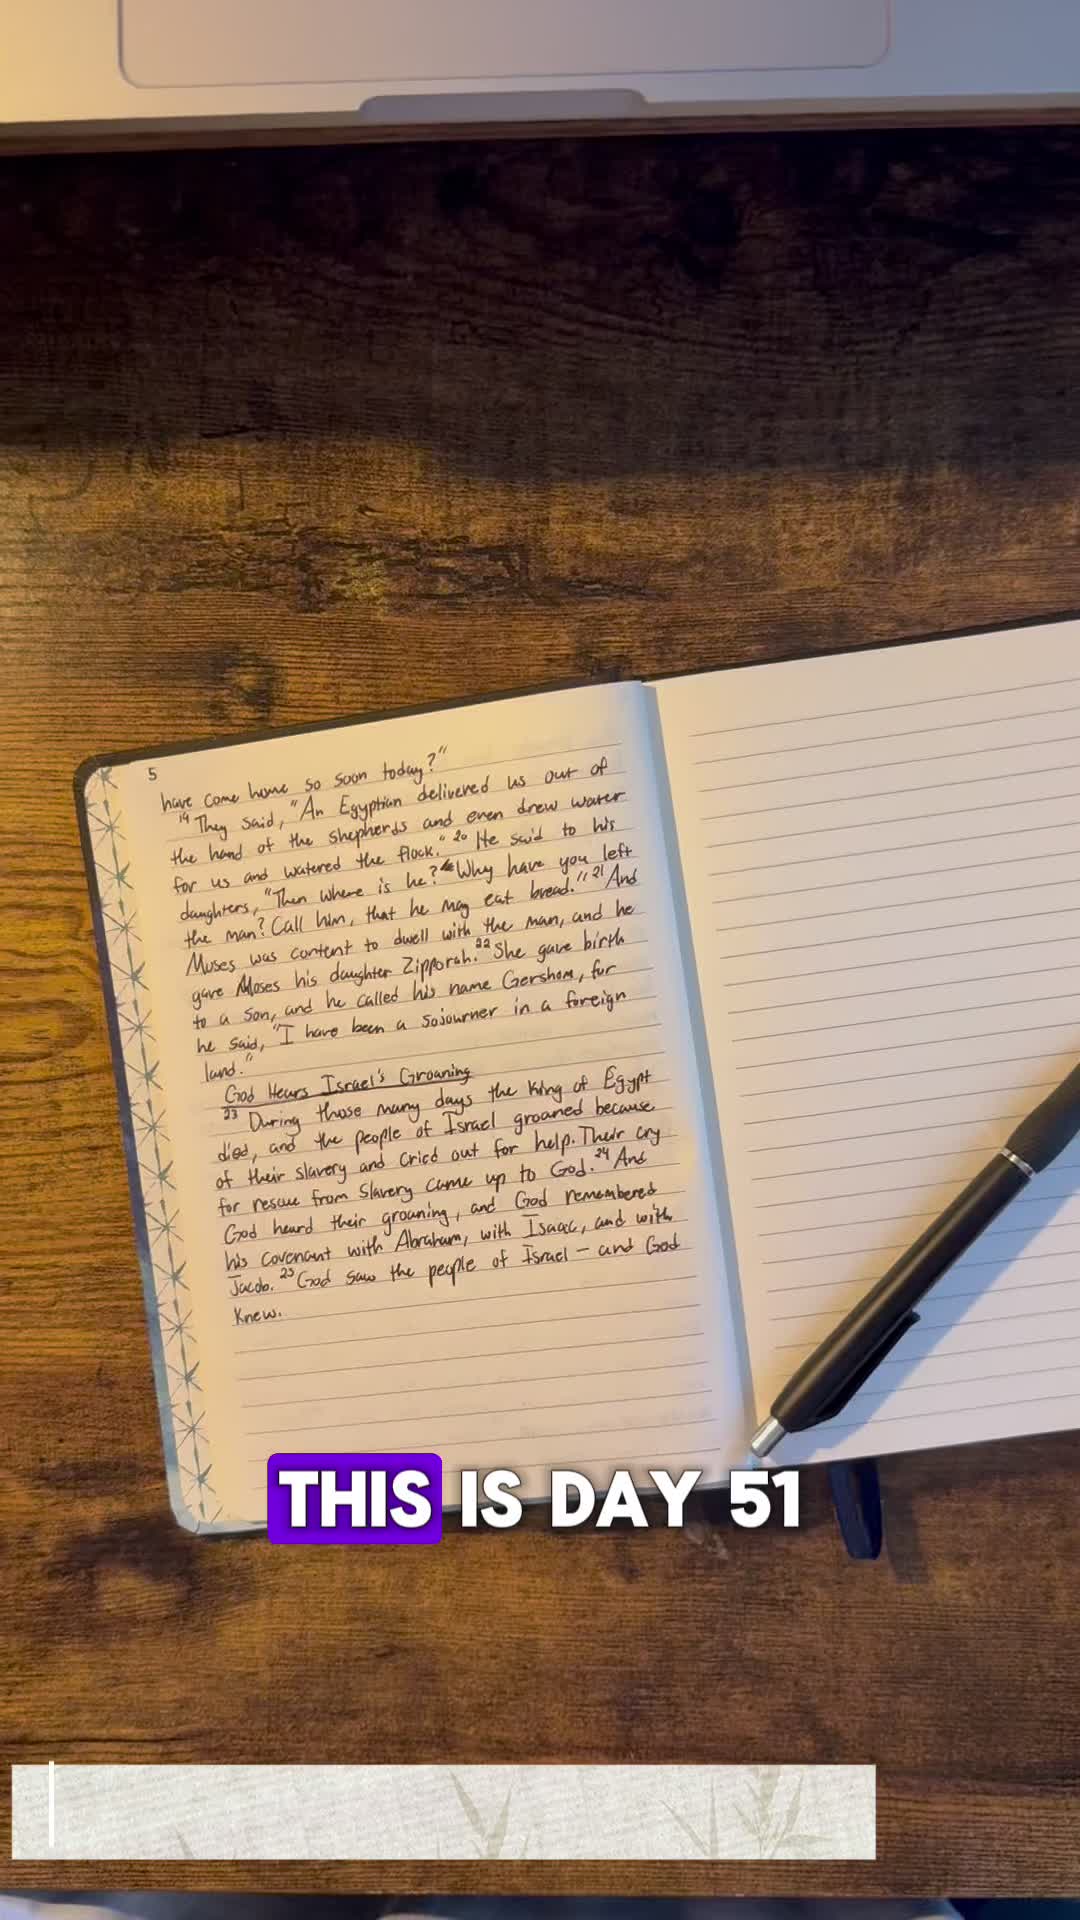 5
have come home so soon today?"
19 They said, "An Egyptian delivered us out of
the hand of the shepherds and even drew water
for us and watered the flock." 20 He said to his
daughters, "Then where is he? Why have you left
the man? Call him, that he may eat bread." 21 And
Moses was content to dwell with the man, and he
gave Moses his daughter Zipporah. 22 She gave birth
to a son, and he called his name Gershom, for
he said, "I have been a sojourner in a foreign
land."
God Hears Israel's Groaning
23 During those many days the king of Egypt
died, and the people of Israel groaned because
of their slavery and cried out for help. Their cry
for rescue from slavery came up to God. 24 And
God heard their groaning, and God remembered
his covenant with Abraham, with Isaac, and with
Jacob. 25 God saw the people of Israel – and God
knew.
THIS IS DAY 51